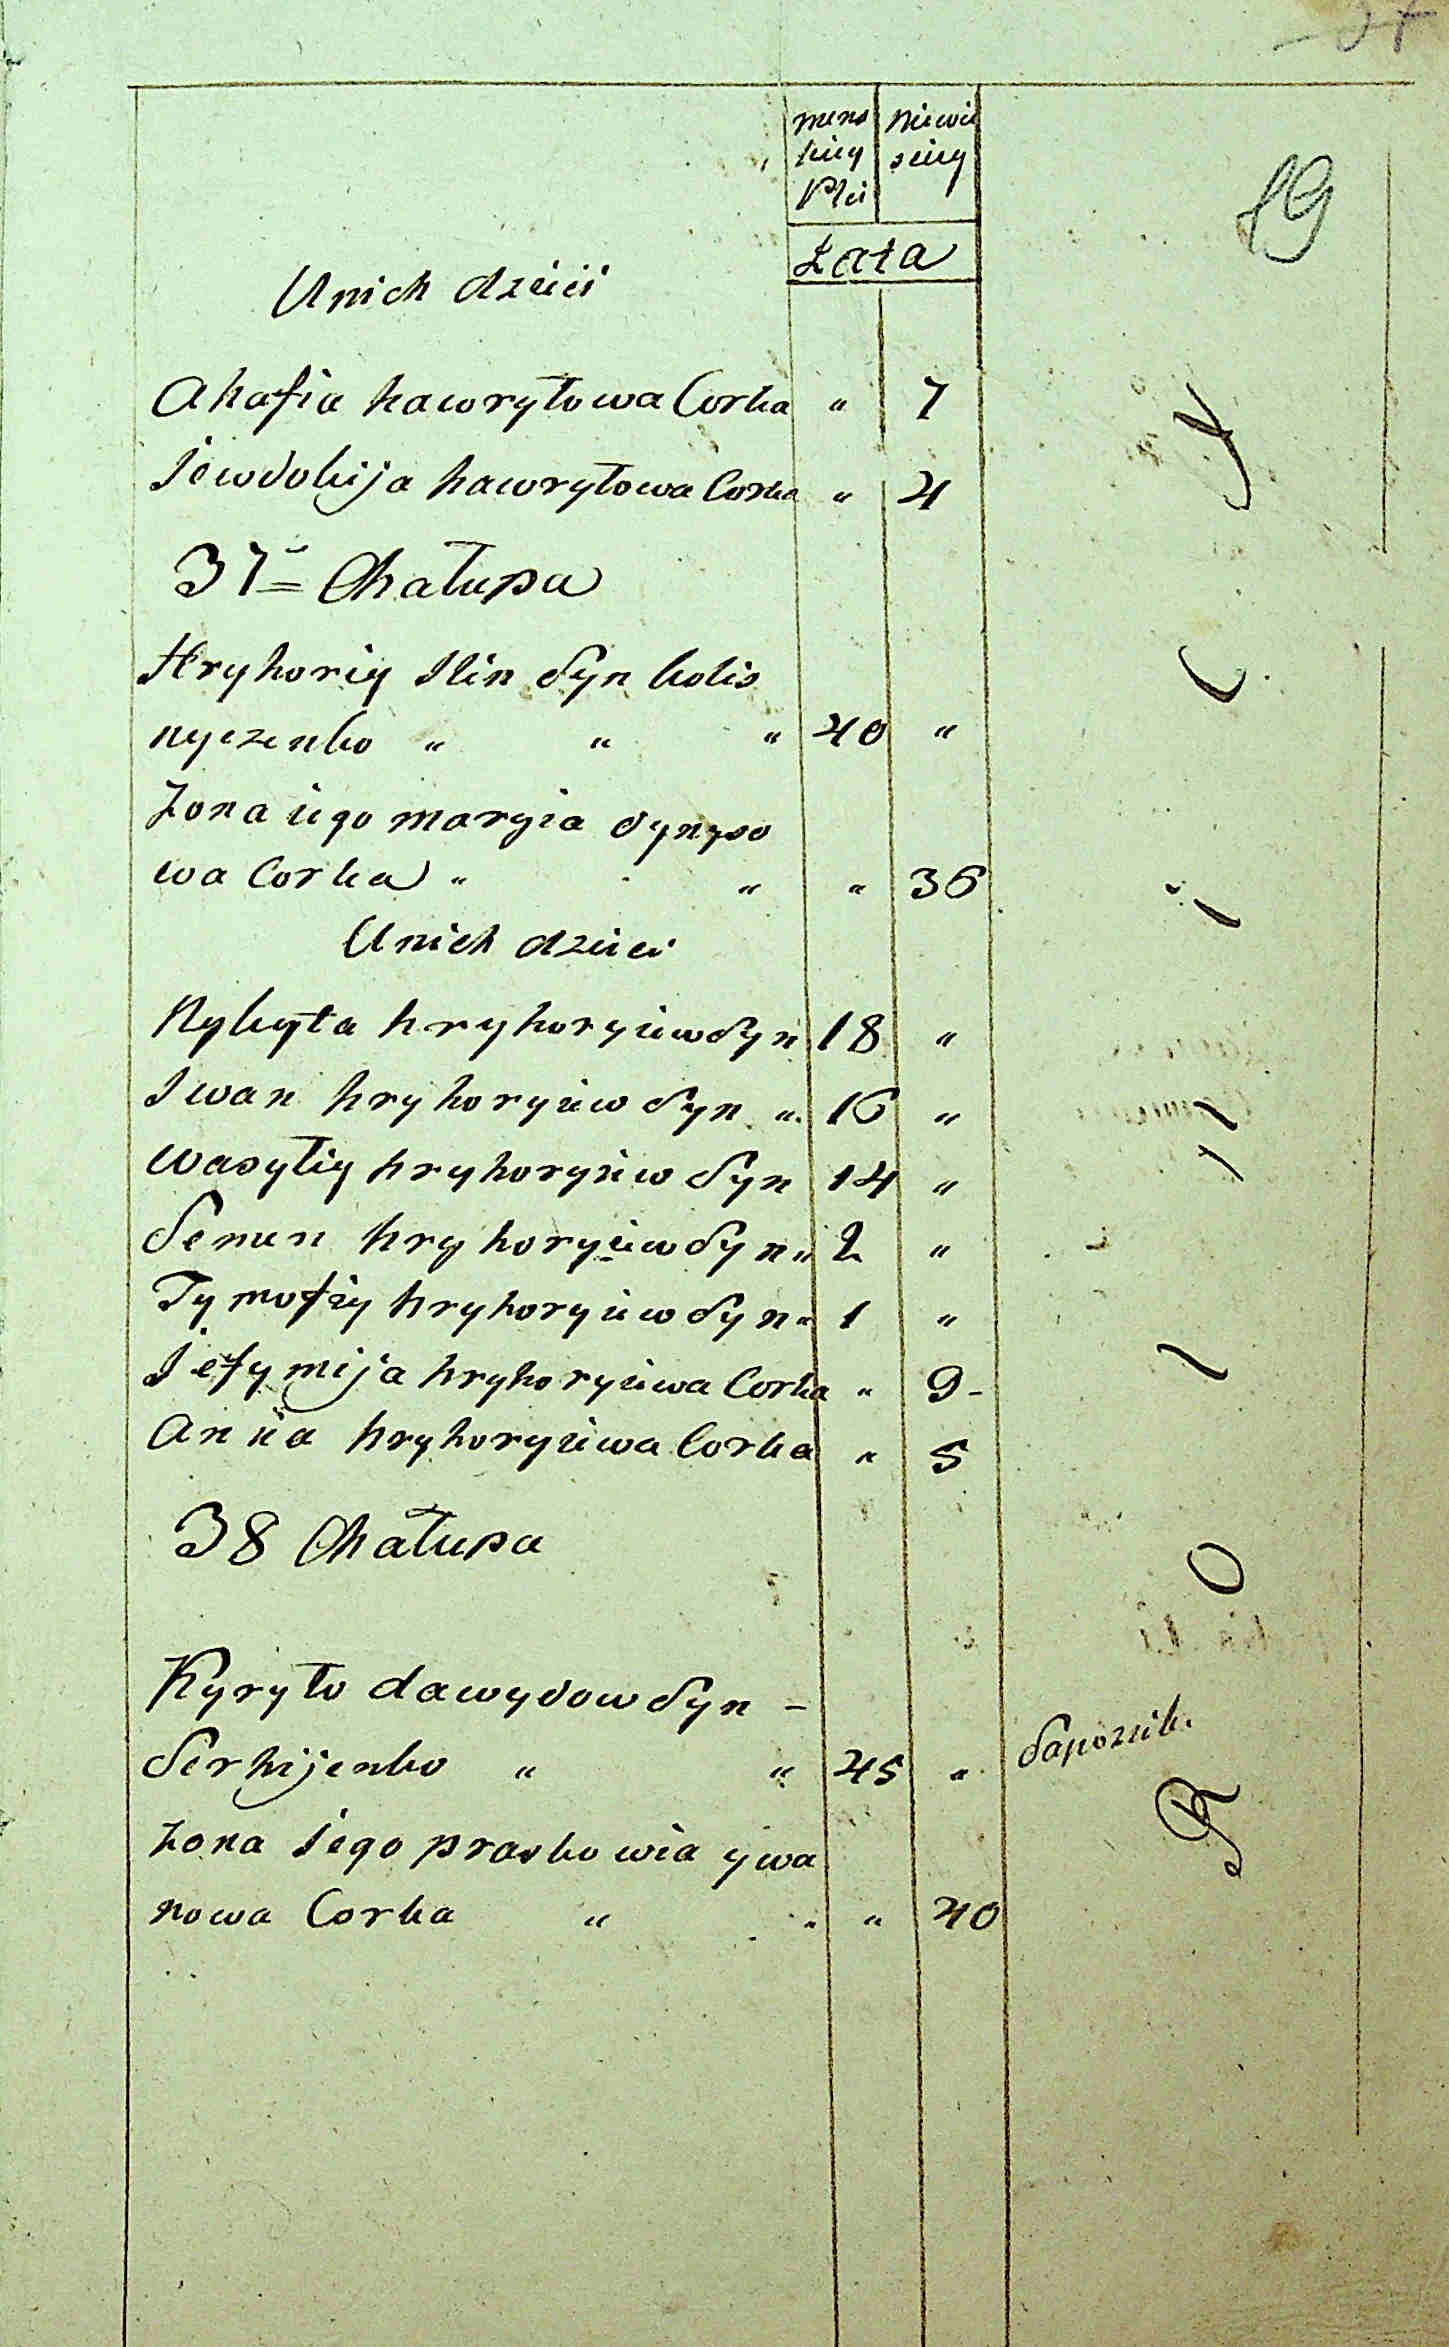 19
mens niewie
kiey skiey
Plci
Lata
U nich dzieci
Ahafia hawryłowa Corka " 7
Jewdokija hawryłowa Corka " 4
37 Chałupa
Hryhoriy Ilin Syn kolis
nyczenko " " " 40 "
Żona iego maryia dynyso
wa Corka " " " 36
U nich dzieci
Nykyta hryhoryiew Syn 18 "
Iwan hryhoryiew Syn " 16 "
Wasyliy hryhoryiew Syn 14 "
Semen hryhoryiew Syn " 2 "
Tymofiy hryhoryiew Syn " 1 "
Jefymija hryhoryiewa Corka " 9 -
Anna hryhoryiewa Corka " 5
38 Chałupa
Kyryło dawydow Syn -
Serhijenko " " 45 "
Żona Jego praskowia ywa
nowa Corka " " " 40